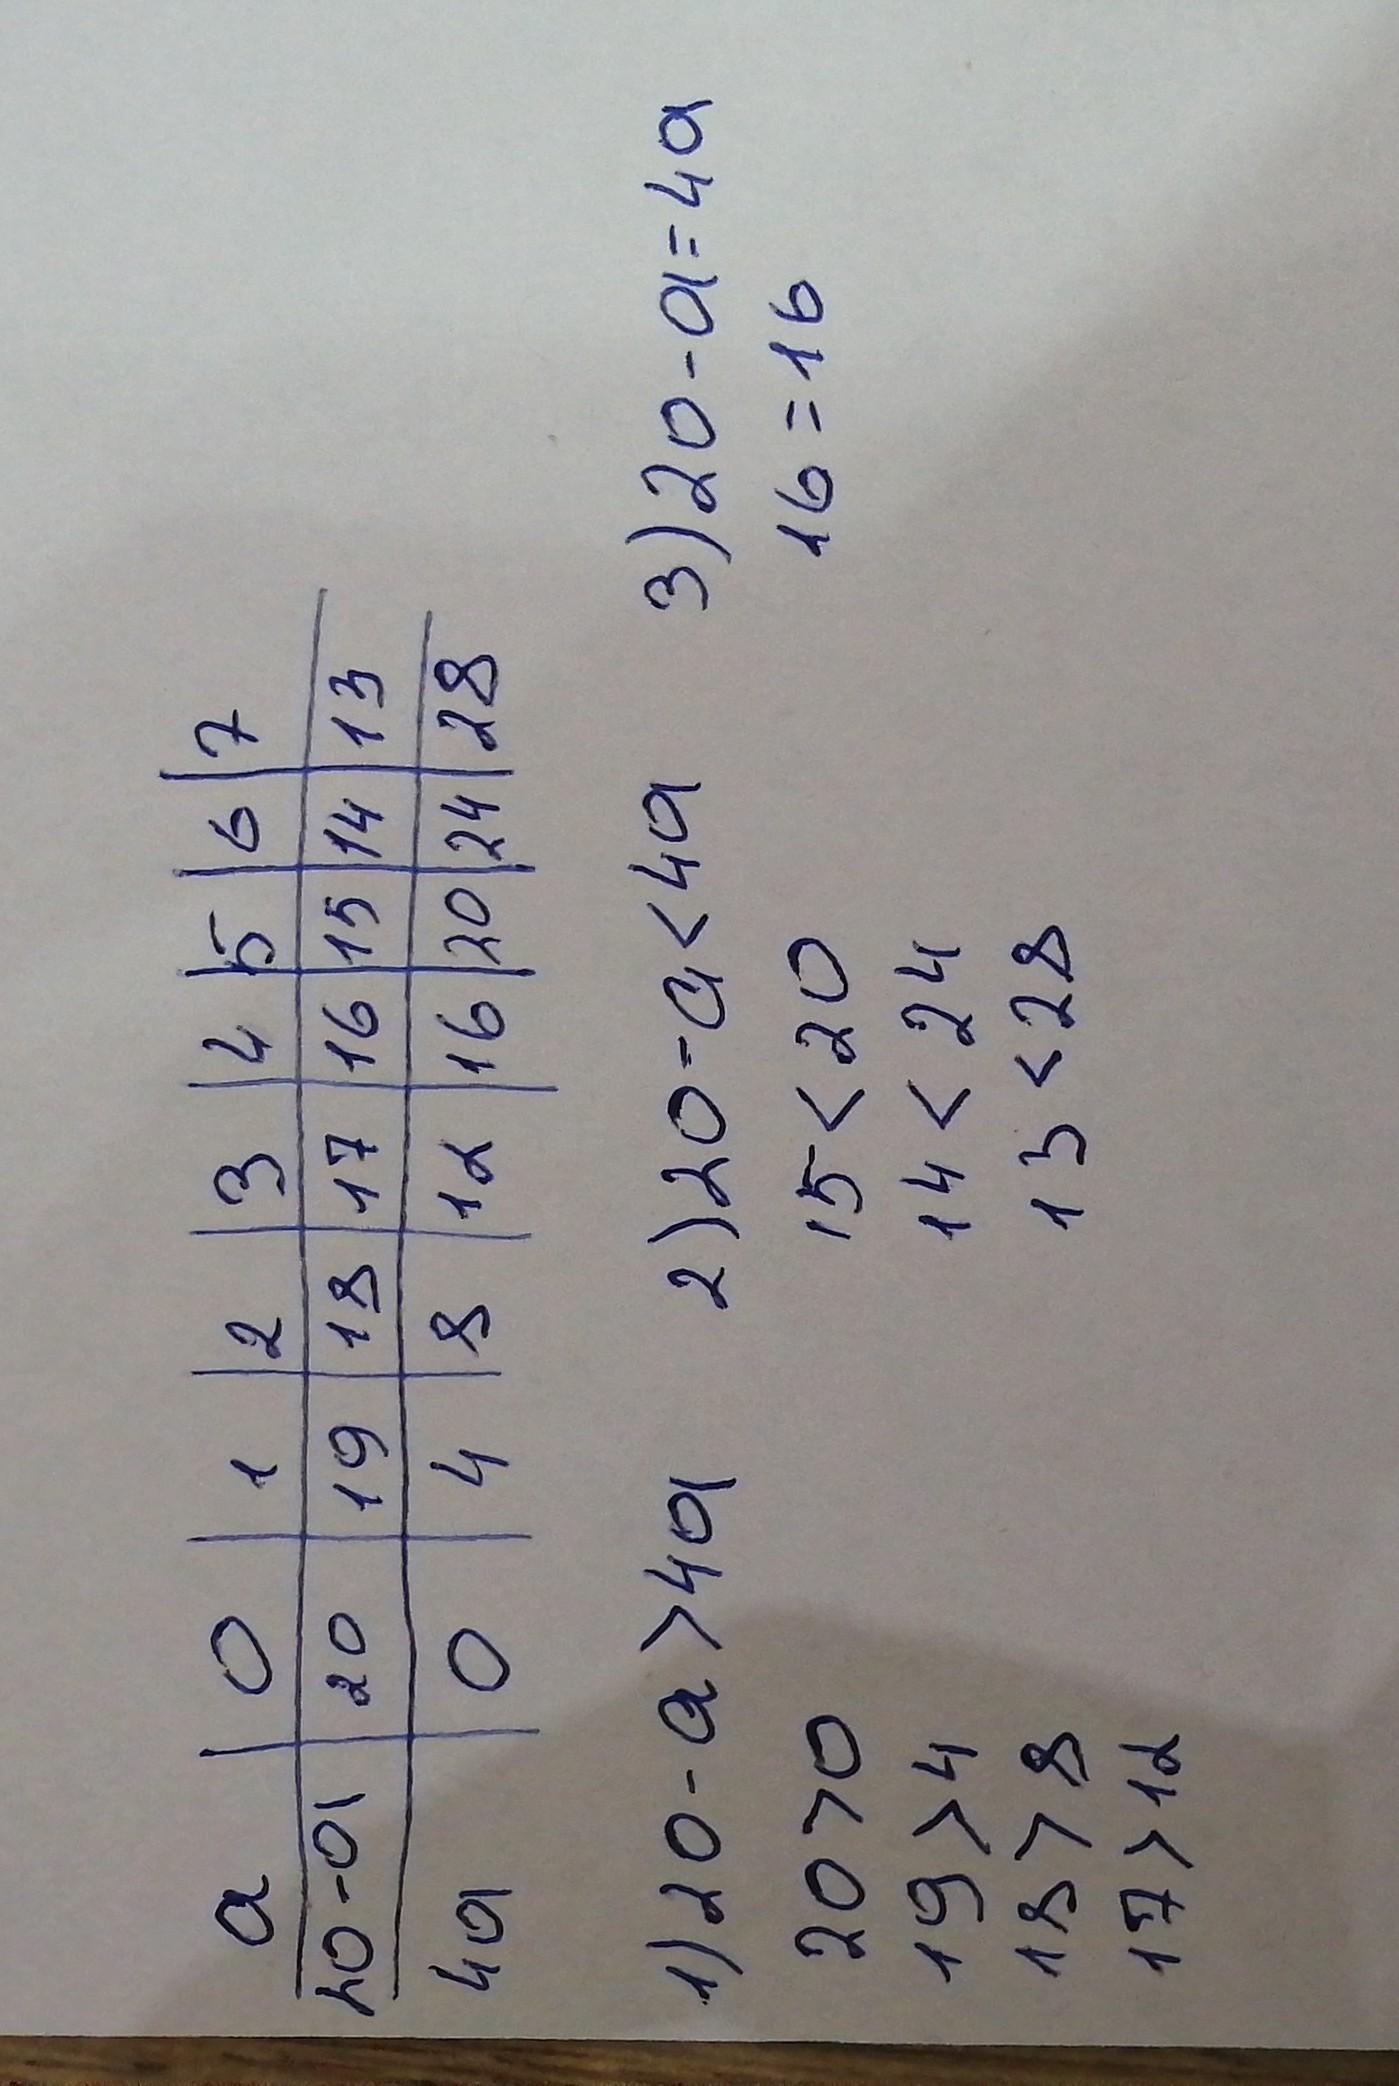 a 0 1 2 3 4 5 6 7
20-a 20 19 18 17 16 15 14 13
4a 0 4 8 12 16 20 24 28
1) 20-a>4a 2) 20-a<4a 3) 20-a=4a
20>0 15<20 16=16
19>4 14<24
18>8 13<28
17>12